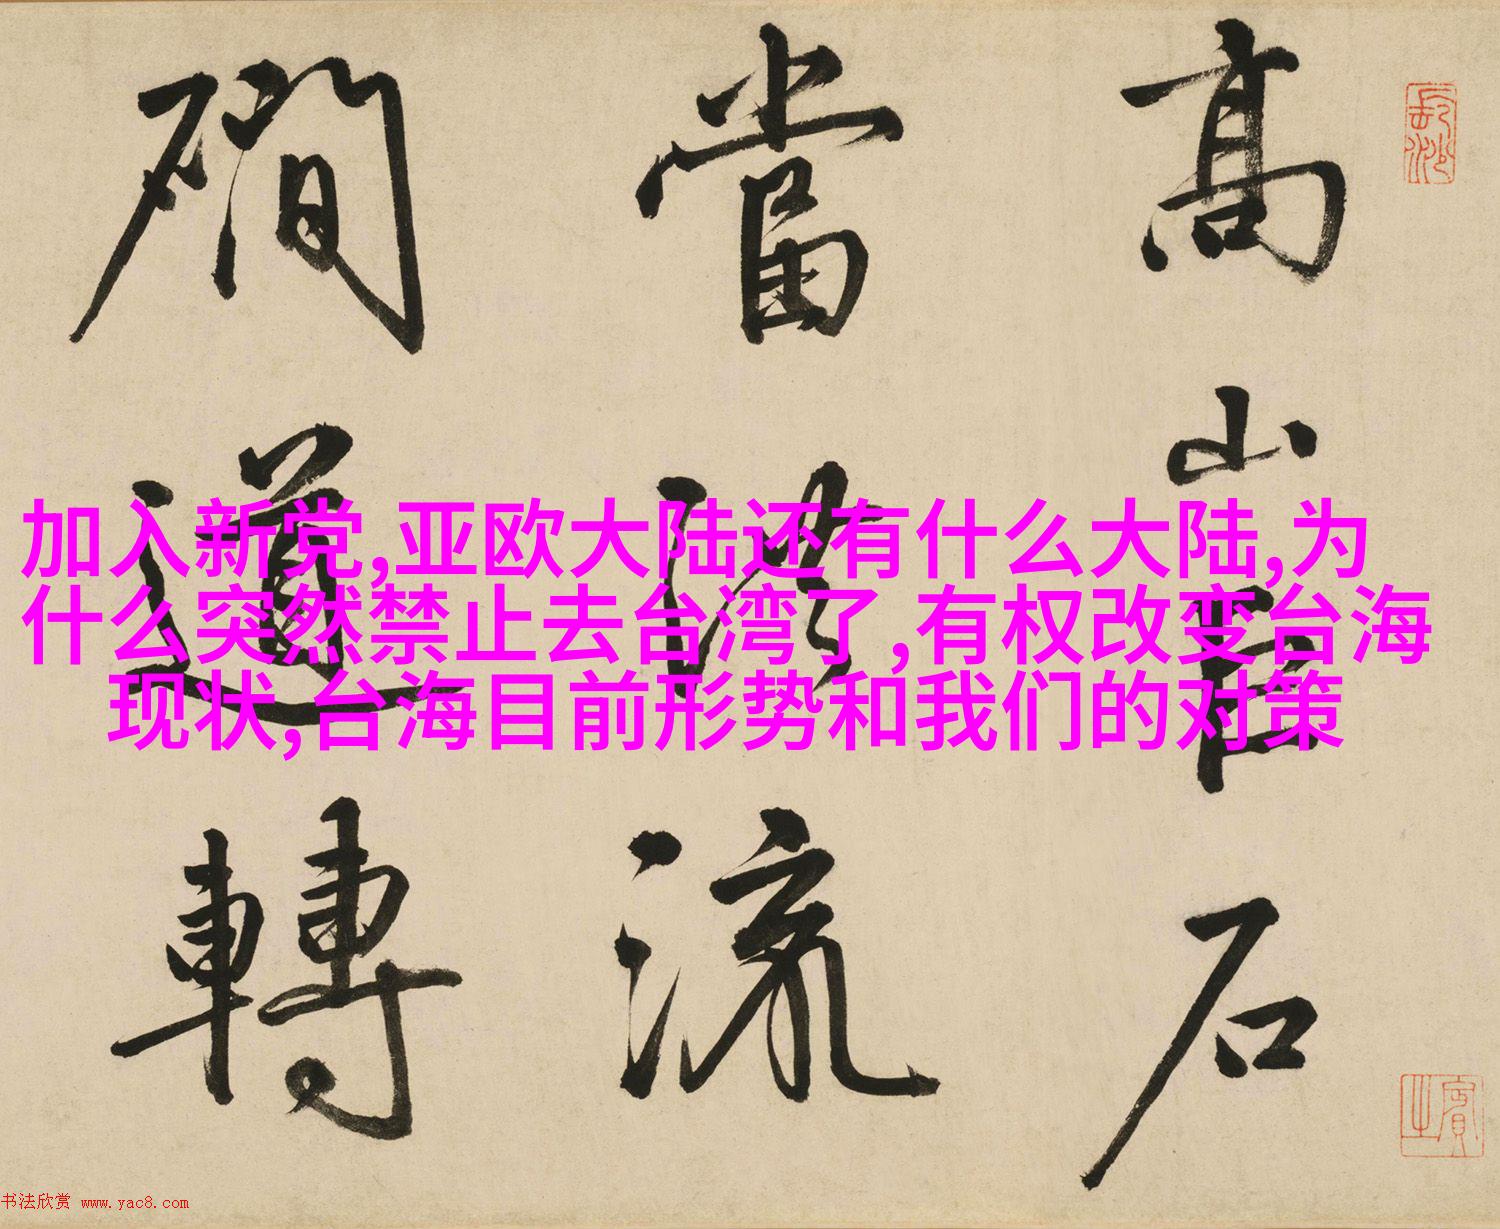 加入新党,亚欧大陆还有什么大陆,为
什么突然禁止去台湾了,有权改变台海
现状,台海目前形势和我们的对策
高山巨石
當洪流
磵道轉
長沙
賓之
书法欣赏 www.yac8.com